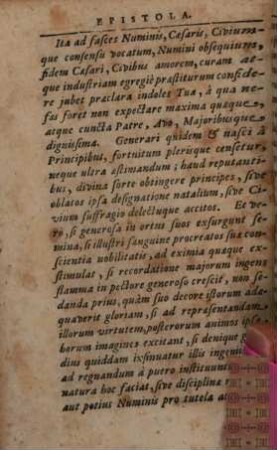 EPISTOLA.
Ita ad fasces Numinis, Cæsaris, Civium-
que consensu vocatum, Numini obsequium,
fidem Cæsari, Civibus amorem, curam at-
que industriam egregiè præstiturum confide-
re jubet præclara indoles Tua, à qua ne-
fas foret non expectare maxima quæque,
atque cuncta Patre, Avo, Majoribusque
dignissima. Generari quidem & nasci à
Principibus, fortuitum plerisque censetur,
neque ultra æstimandum; haud reputanti-
bus, divina sorte obtingere principes, sive
oblatos ipsa designatione natalium, sive Ci-
vium suffragio delectuque accitos. Et ve-
ro, si generosa in ortus suos exsurgunt se-
mina, si illustri sanguine procreatos sua con-
scientia nobilitatis, ad eximia quæque ex-
stimulat, si recordatione majorum ingens
flamma in pectore generoso crescit, non se-
danda prius, quàm suo decore illorum adæ-
quaverit gloriam, si ad repræsentandam
illorum virtutem, posterorum animos ipsæ
berum imagines excitant, si denique
dius quiddam insinuat illis ingeni
ad regnandum à puero instituun
natura hoc faciat, sive disciplina
aut potius Numinis pro tutela